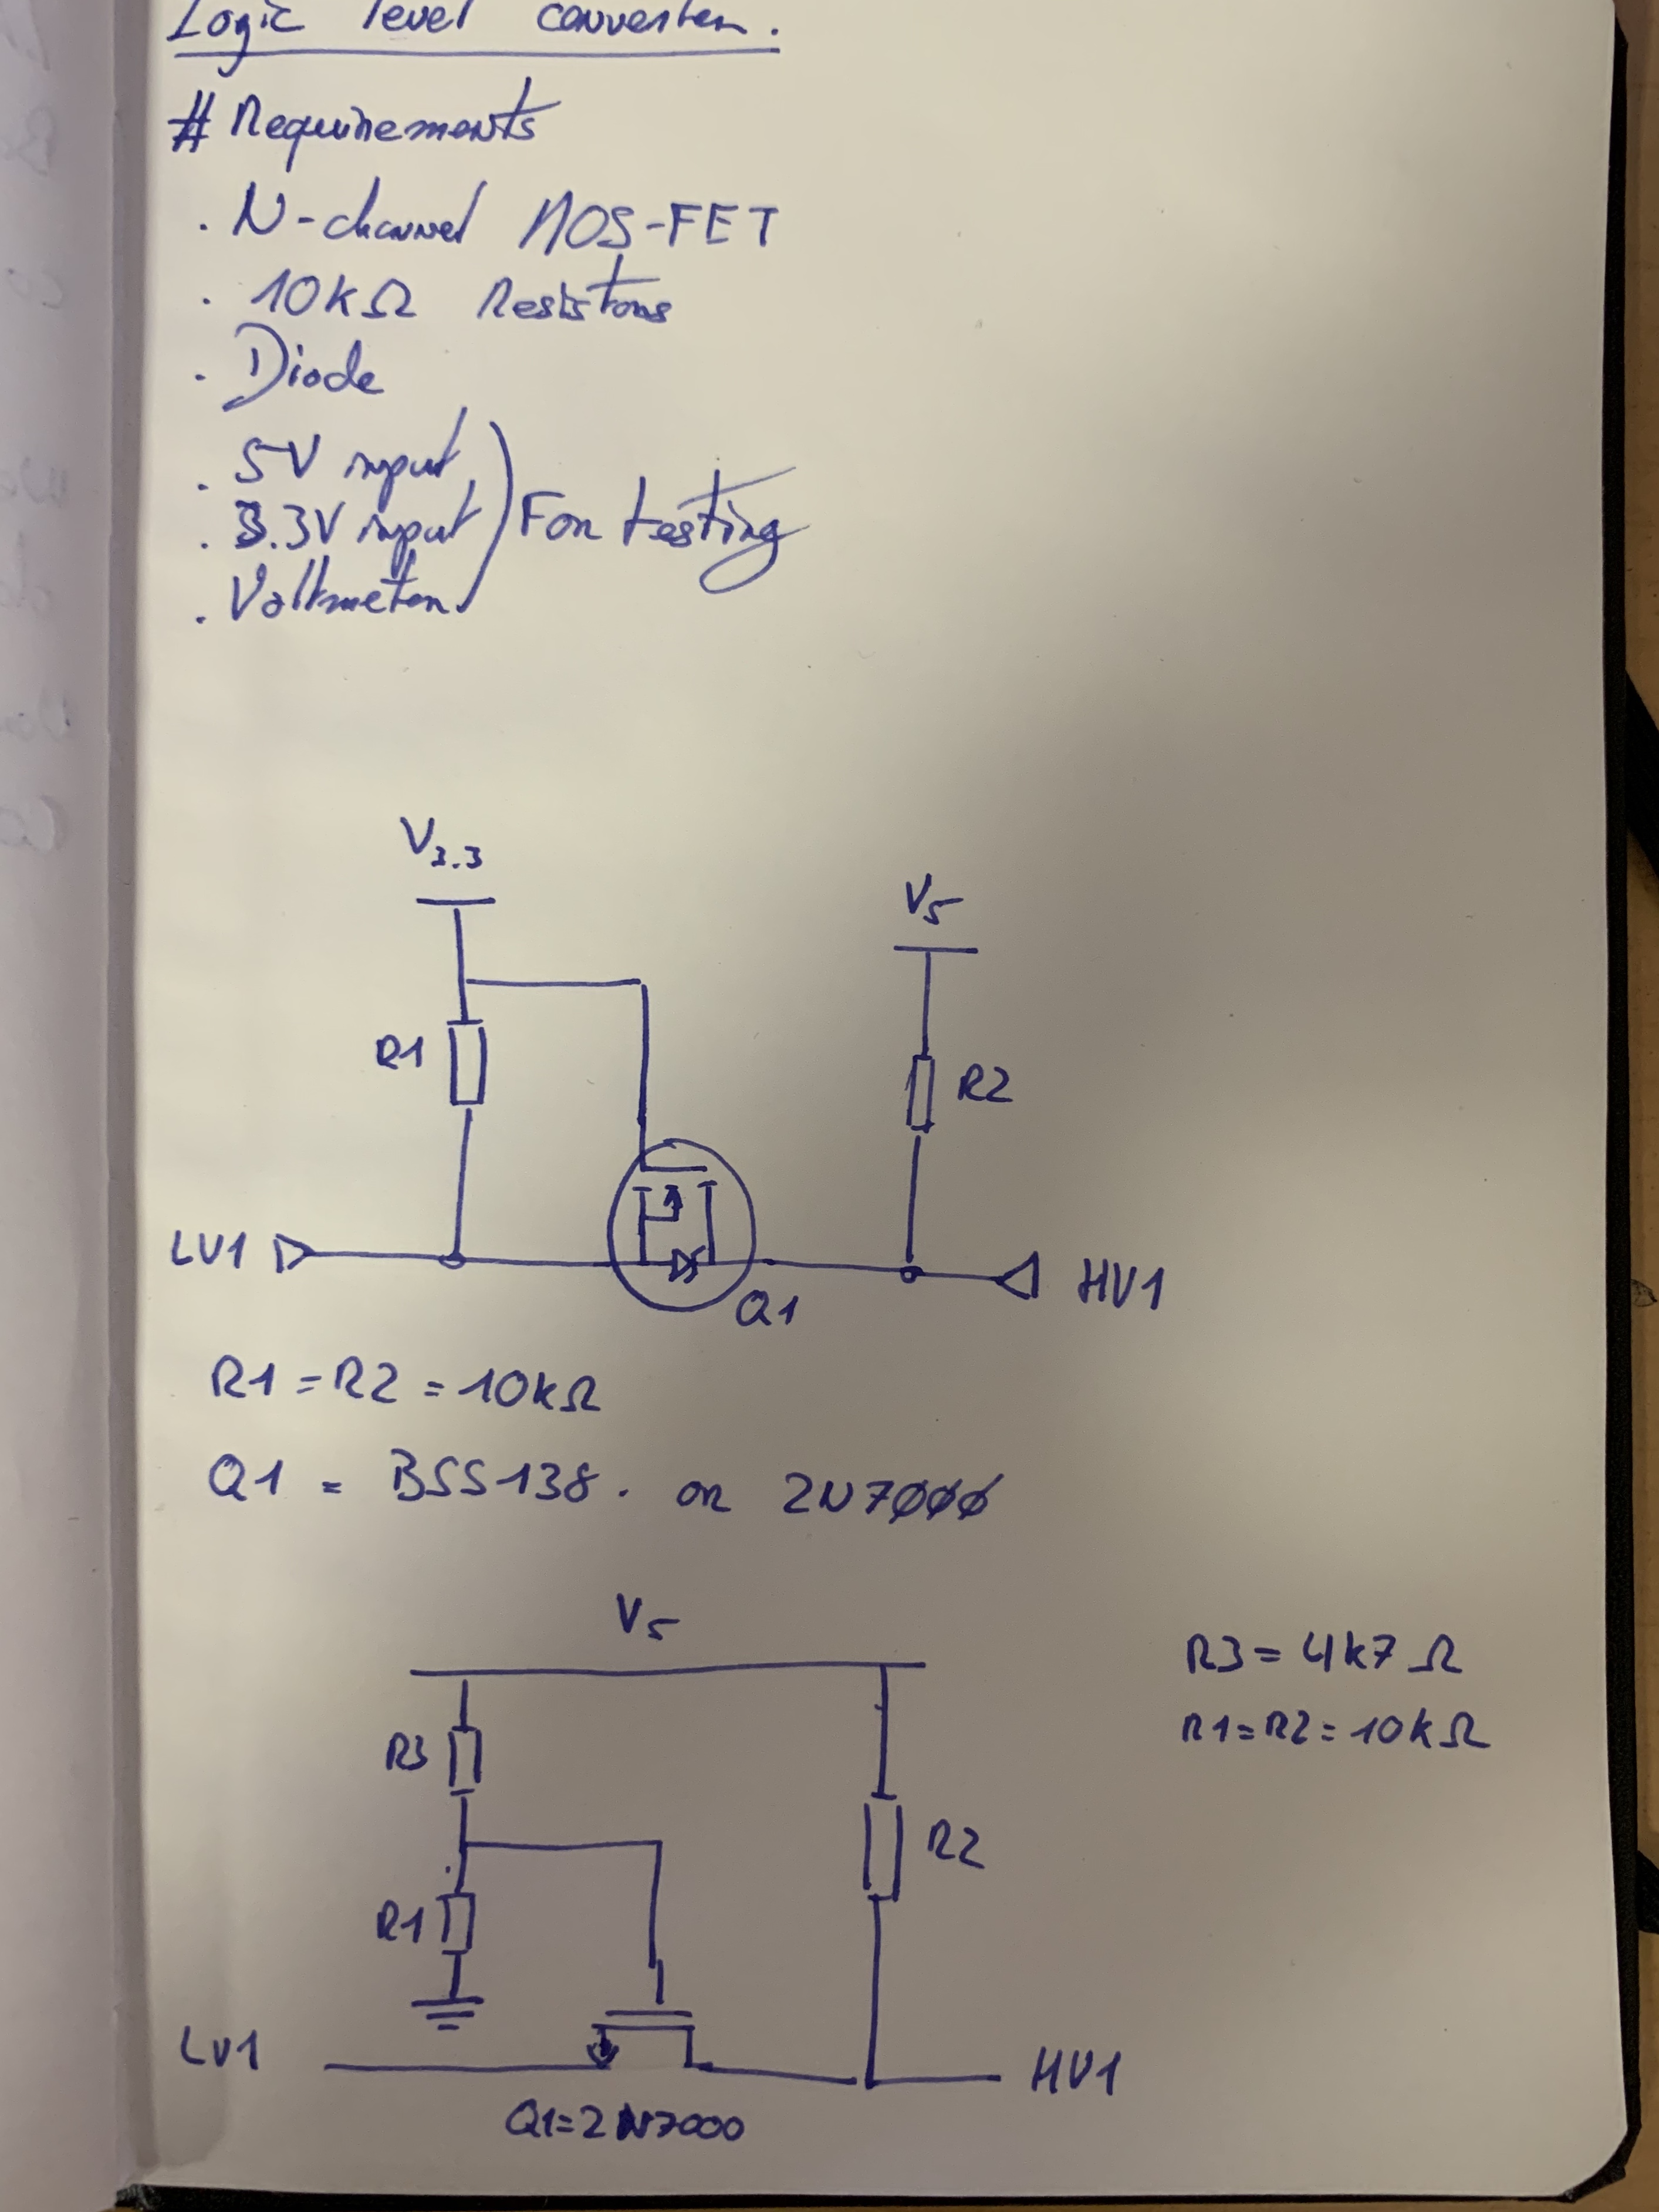 Logic level converter.
# Requirements
. N-channel MOS-FET
. 10kΩ Resistors
. Diode
. 5V input
. 3.3V input
. Voltmeter
For testing
V3.3
V5
R1
R2
LV1
HV1
Q1
R1 = R2 = 10kΩ
Q1 = BSS138. or 2N7000
V5
R3 = 4k7 Ω
R1 = R2 = 10kΩ
R3
R2
R1
LV1
HV1
Q1=2N7000